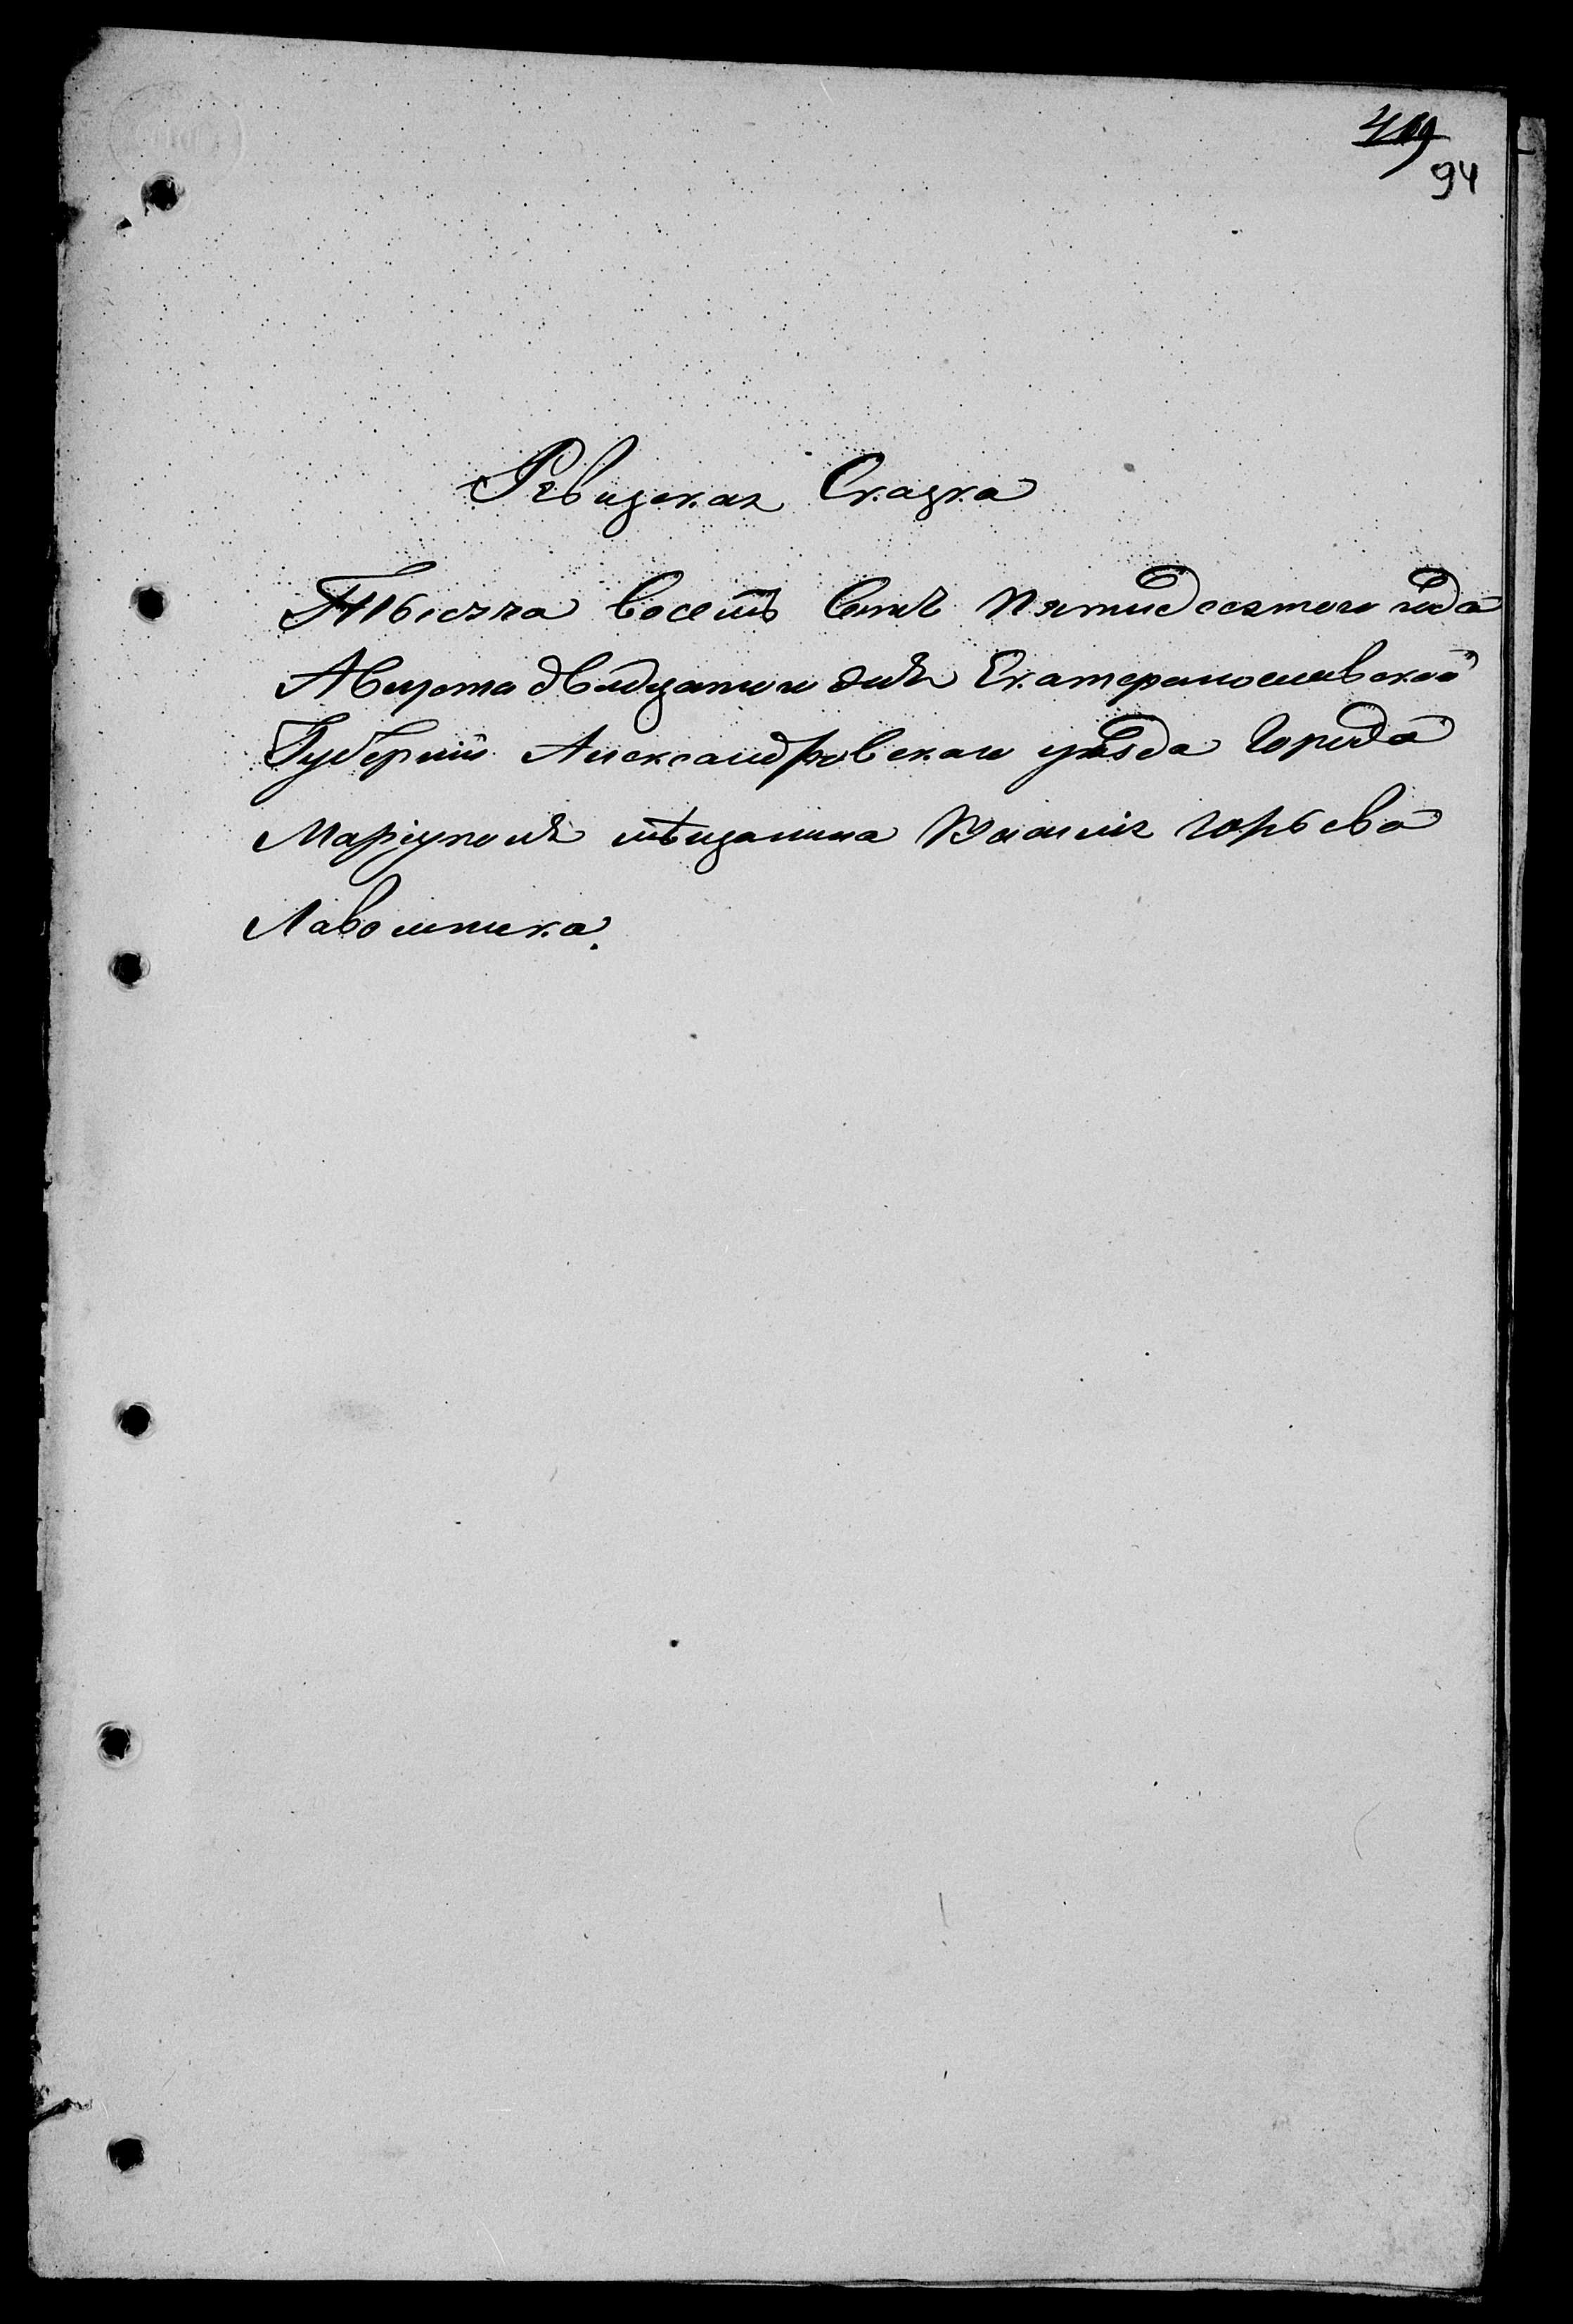 94
Ревизская Сказка
Тысяча восемь сотъ пятидесятого года
Августа двадцатого дня Екатеринославской
Губернии Александровскаго уѣзда города
Маріуполя мѣщанина горьева